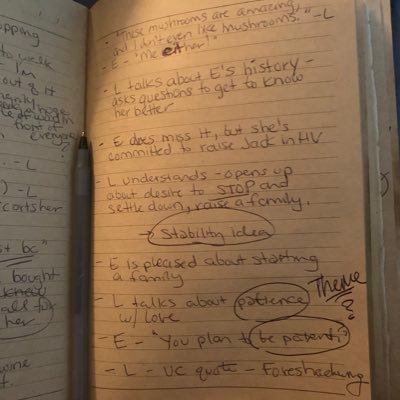 opping
to week
I'm
out of it
front of
everyone
?
. - L
) - L
"
bought
her
wine
- "These mushrooms are amazing
and I don't even like mushrooms." - L
- E - "Me either!"
- L talks about E's history -
asks questions to get to know
her better
- E does miss it, but she's
committed to raise Jack in HV
- L understands - opens up
about desire to STOP and
settle down, raise a family.
→ Stability idea
- E is pleased about starting
a family
- L talks about patience
w/ love
Theme
?
- E - "You plan to be patient?"
- L - UC quote - Foreshadowing